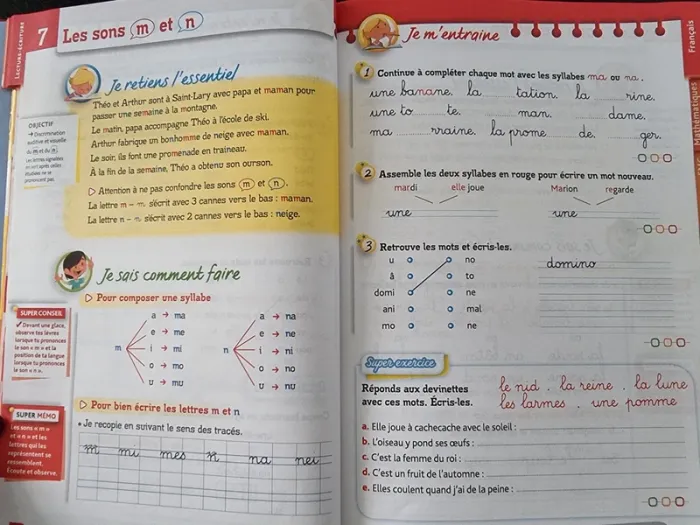 LECTURE-ÉCRITURE
7 Les sons m et n
Je retiens l'essentiel
OBJECTIF
→ Discrimination
auditive et visuelle
du m et du n.
Les lettres
sont
étudiées ne se
prononcent pas.
Théo et Arthur sont à Saint-Lary avec papa et maman pour
passer une semaine à la montagne.
Le matin, papa accompagne Théo à l'école de ski.
Arthur fabrique un bonhomme de neige avec maman.
Le soir, ils font une promenade en traineau.
À la fin de la semaine, Théo a obtenu son ourson.
Attention à ne pas confondre les sons m et n.
La lettre m – m s'écrit avec 3 cannes vers le bas : maman.
La lettre n – n s'écrit avec 2 cannes vers le bas : neige.
Je sais comment faire
Pour composer une syllabe
SUPER CONSEIL
✓ Devant une glace,
observe tes lèvres
lorsque tu prononces
le son « m » et la
position de ta langue
lorsque tu prononces
le son « n ».
m
a → ma
e → me
i → mi
o → mo
u → mu
n
a → na
e → ne
i → ni
o → no
u → nu
SUPER MÉMO
Les sons « m »
et « n » et les
lettres qui les
représentent se
ressemblent.
Écoute et observe.
Pour bien écrire les lettres m et n
• Je recopie en suivant le sens des tracés.
m mi mes n na nei
Je m'entraine
Français
Mathématiques
1 Continue à compléter chaque mot avec les syllabes ma ou na.
une banane, la tation, la rine,
une to te, man, dame,
ma rraine, la prome de, ger.
2 Assemble les deux syllabes en rouge pour écrire un mot nouveau.
mardi elle joue Marion regarde
une une
3 Retrouve les mots et écris-les.
u no domino
â to
domi ne
ani mal
mo te
Super exercice
Réponds aux devinettes
avec ces mots. Écris-les.
le nid , la reine , la lune
les larmes , une pomme
a. Elle joue à cachecache avec le soleil :
b. L'oiseau y pond ses œufs :
c. C'est la femme du roi :
d. C'est un fruit de l'automne :
e. Elles coulent quand j'ai de la peine :